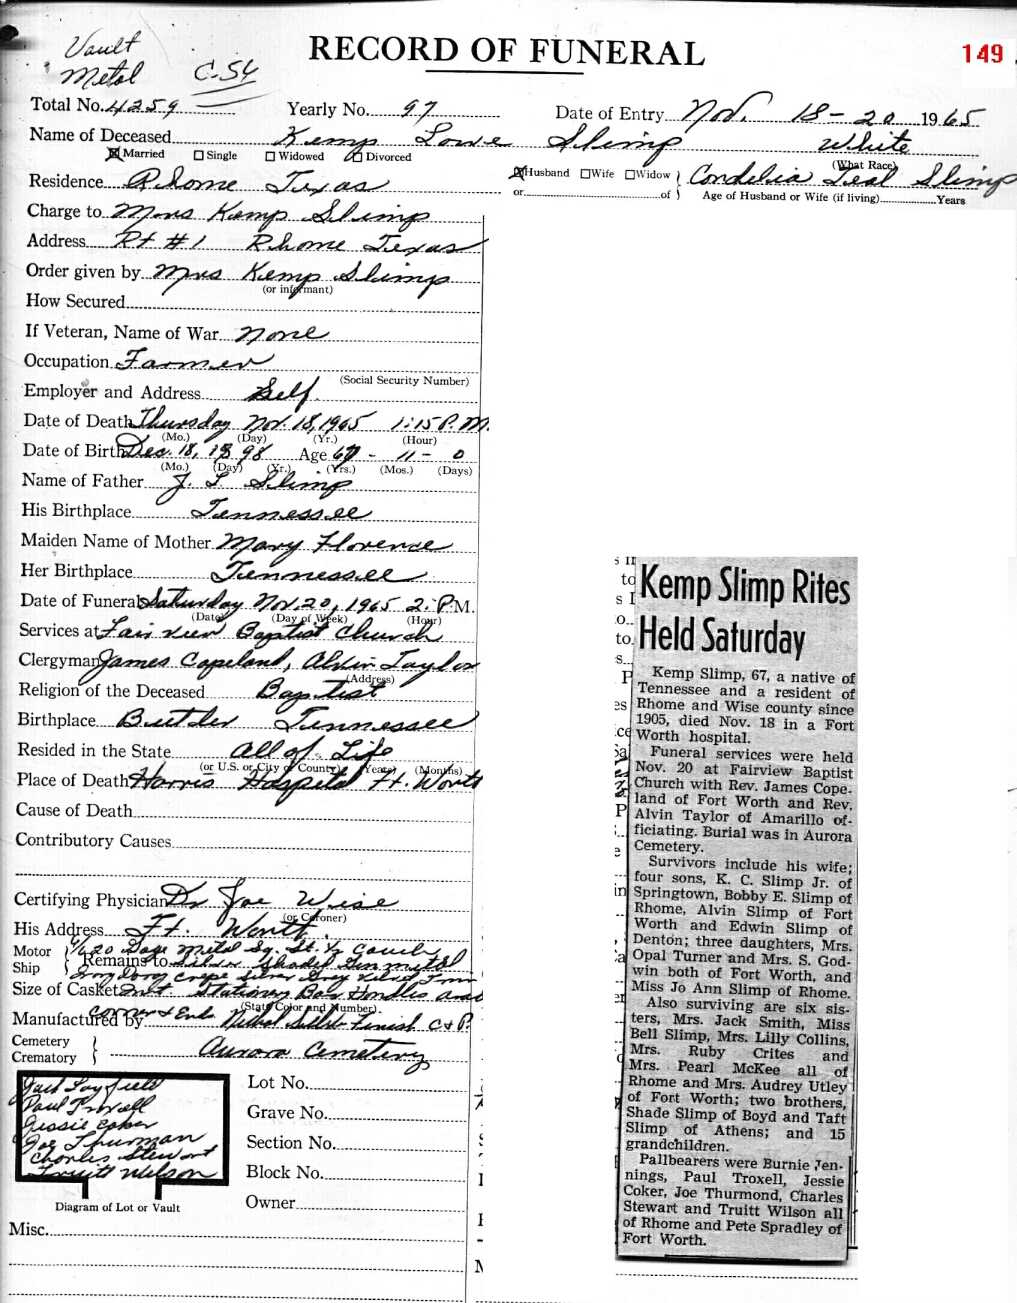 Vault
Metal C-54
RECORD OF FUNERAL
149
Total No. 4259 Yearly No. 97 Date of Entry Nov. 18-20 1965
Name of Deceased Kemp Lowe Slimp White
Married Single Widowed Divorced (What Race)
Residence Rhome Texas Husband Wife Widow } Cordelia Teal Slimp
or of } Age of Husband or Wife (if living) Years
Charge to Mrs Kemp Slimp
Address Rt #1 Rhome Texas
Order given by Mrs Kemp Slimp
(or informant)
How Secured
If Veteran, Name of War None
Occupation Farmer
(Social Security Number)
Employer and Address Self
Date of Death Thursday Nov. 18, 1965 1:15 P.M.
(Mo.) (Day) (Yr.) (Hour)
Date of Birth Dec. 18, 1898 Age 67 - 11 - 0
(Mo.) (Day) (Yr.) (Yrs.) (Mos.) (Days)
Name of Father J. L Slimp
His Birthplace Tennessee
Maiden Name of Mother Mary Florence
Her Birthplace Tennessee
Date of Funeral Saturday Nov. 20, 1965 2: P.M.
(Date) (Day of Week) (Hour)
Services at Fairview Baptist Church
Clergyman James Copeland, Alvin Taylor
(Address)
Religion of the Deceased Baptist
Birthplace Butler Tennessee
Resided in the State All of Life
(or U.S. or City or County) (Years) (Months)
Place of Death Harris Hospital Ft. Worth
Cause of Death
Contributory Causes
Certifying Physician Dr Joe Wise
(or Coroner)
His Address Ft. Worth
Motor
Ship } Remains to Silver Shaded Gunmetal
20 Gage Metal Sq.
Crepe Silver Grey
Size of Casket Int. Stationery Bar Handles and
(State Color and Number)
Manufactured by Corner & Finish C & P.
Cemetery
Crematory } Aurora Cemetery
Jack Layfield
Paul Troxell
Jessie Coker
Joe Thurman
Charles Stewart
Truitt Wilson
Diagram of Lot or Vault
Lot No.
Grave No.
Section No.
Block No.
Owner
Misc.
Kemp Slimp Rites
Held Saturday
Kemp Slimp, 67, a native of
Tennessee and a resident of
Rhome and Wise county since
1905, died Nov. 18 in a Fort
Worth hospital.
Funeral services were held
Nov. 20 at Fairview Baptist
Church with Rev. James Cope-
land of Fort Worth and Rev.
Alvin Taylor of Amarillo of-
ficiating. Burial was in Aurora
Cemetery.
Survivors include his wife;
four sons, K. C. Slimp Jr. of
Springtown, Bobby E. Slimp of
Rhome, Alvin Slimp of Fort
Worth and Edwin Slimp of
Denton; three daughters, Mrs.
Opal Turner and Mrs. S. God-
win both of Fort Worth, and
Miss Jo Ann Slimp of Rhome.
Also surviving are six sis-
ters, Mrs. Jack Smith, Miss
Bell Slimp, Mrs. Lilly Collins,
Mrs. Ruby Crites and
Mrs. Pearl McKee all of
Rhome and Mrs. Audrey Utley
of Fort Worth; two brothers,
Shade Slimp of Boyd and Taft
Slimp of Athens; and 15
grandchildren.
Pallbearers were Burnie Jen-
nings, Paul Troxell, Jessie
Coker, Joe Thurmond, Charles
Stewart and Truitt Wilson all
of Rhome and Pete Spradley of
Fort Worth.